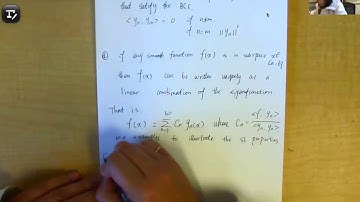 that satisfy the BCs,
< yn, ym > = 0 if n≠m
if n=m ||yn||²
if any smooth function f(x) is in subspace
then f(x) can be written uniquely as a
linear combination of the eigenfunctions
That is
f(x) = ∑ Cn yn(x) where Cn = <f, yn> / <yn, yn>
examples to illustrate the SL properties